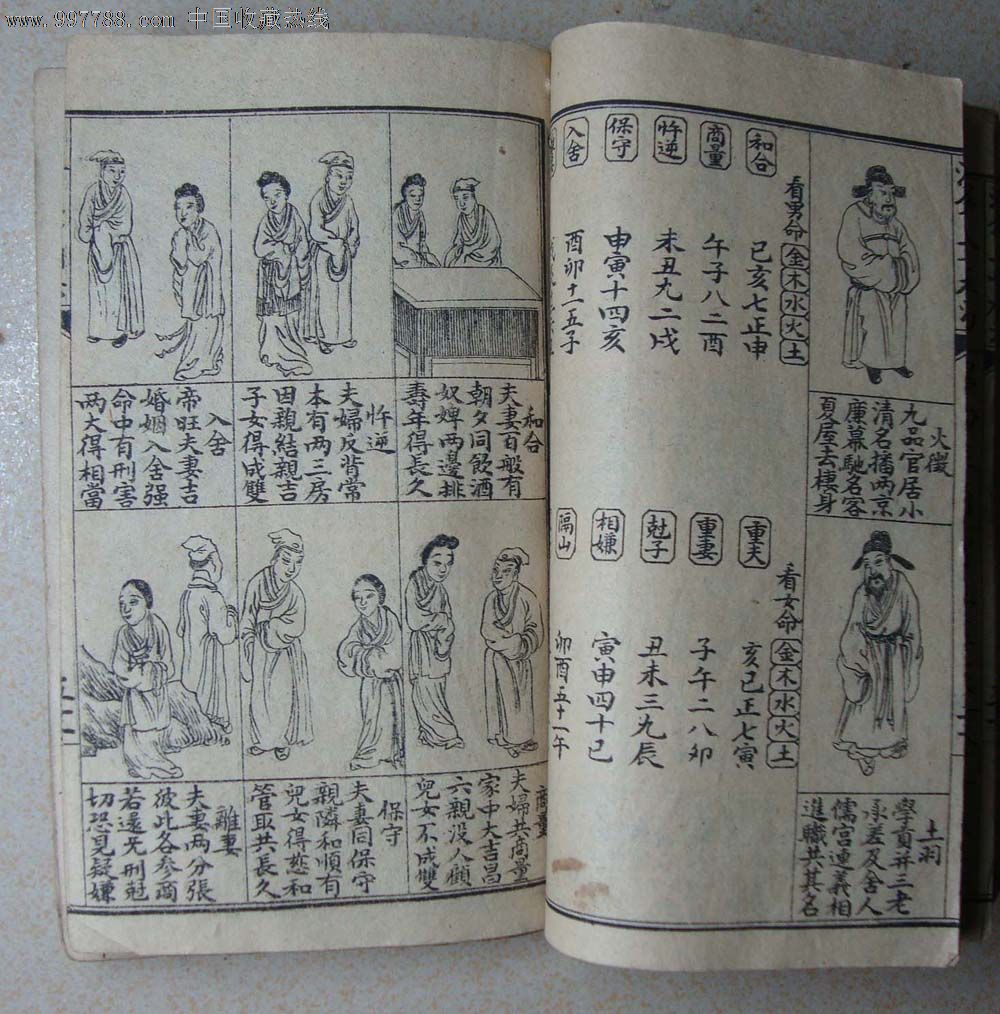 www.997788.com 中国收藏热线
火徵
九品官居小
清名播两京
廉幕馳名客
夏屋去棲身
土羽
學貢并三老
承差及舍人
儒宫連義相
進職共其名
看男命金木水火土
和合
巳亥七正申
商量
午子八二酉
忤逆
未丑九二戌
保守
申寅十四亥
入舍
酉卯十一五子
看女命金木水火土
重夫
亥巳正七寅
重妻
子午二八卯
尅子
丑未三九辰
相嫌
寅申四十巳
隔山
卯酉五十一午
和合
夫妻百般有
朝夕同飲酒
奴婢两邊排
壽年得長久
忤逆
夫婦反背常
本有两三房
因親結親吉
子女得成雙
入舍
帝旺夫妻吉
婚姻入舍强
命中有刑害
两大得相當
商量
夫婦共商量
家中大吉昌
六親没人顧
兒女不成雙
保守
夫妻同保守
親隣和順有
兒女得慈和
管取共長久
離妻
夫妻两分張
彼此各参商
若還无刑尅
切恐見疑嫌